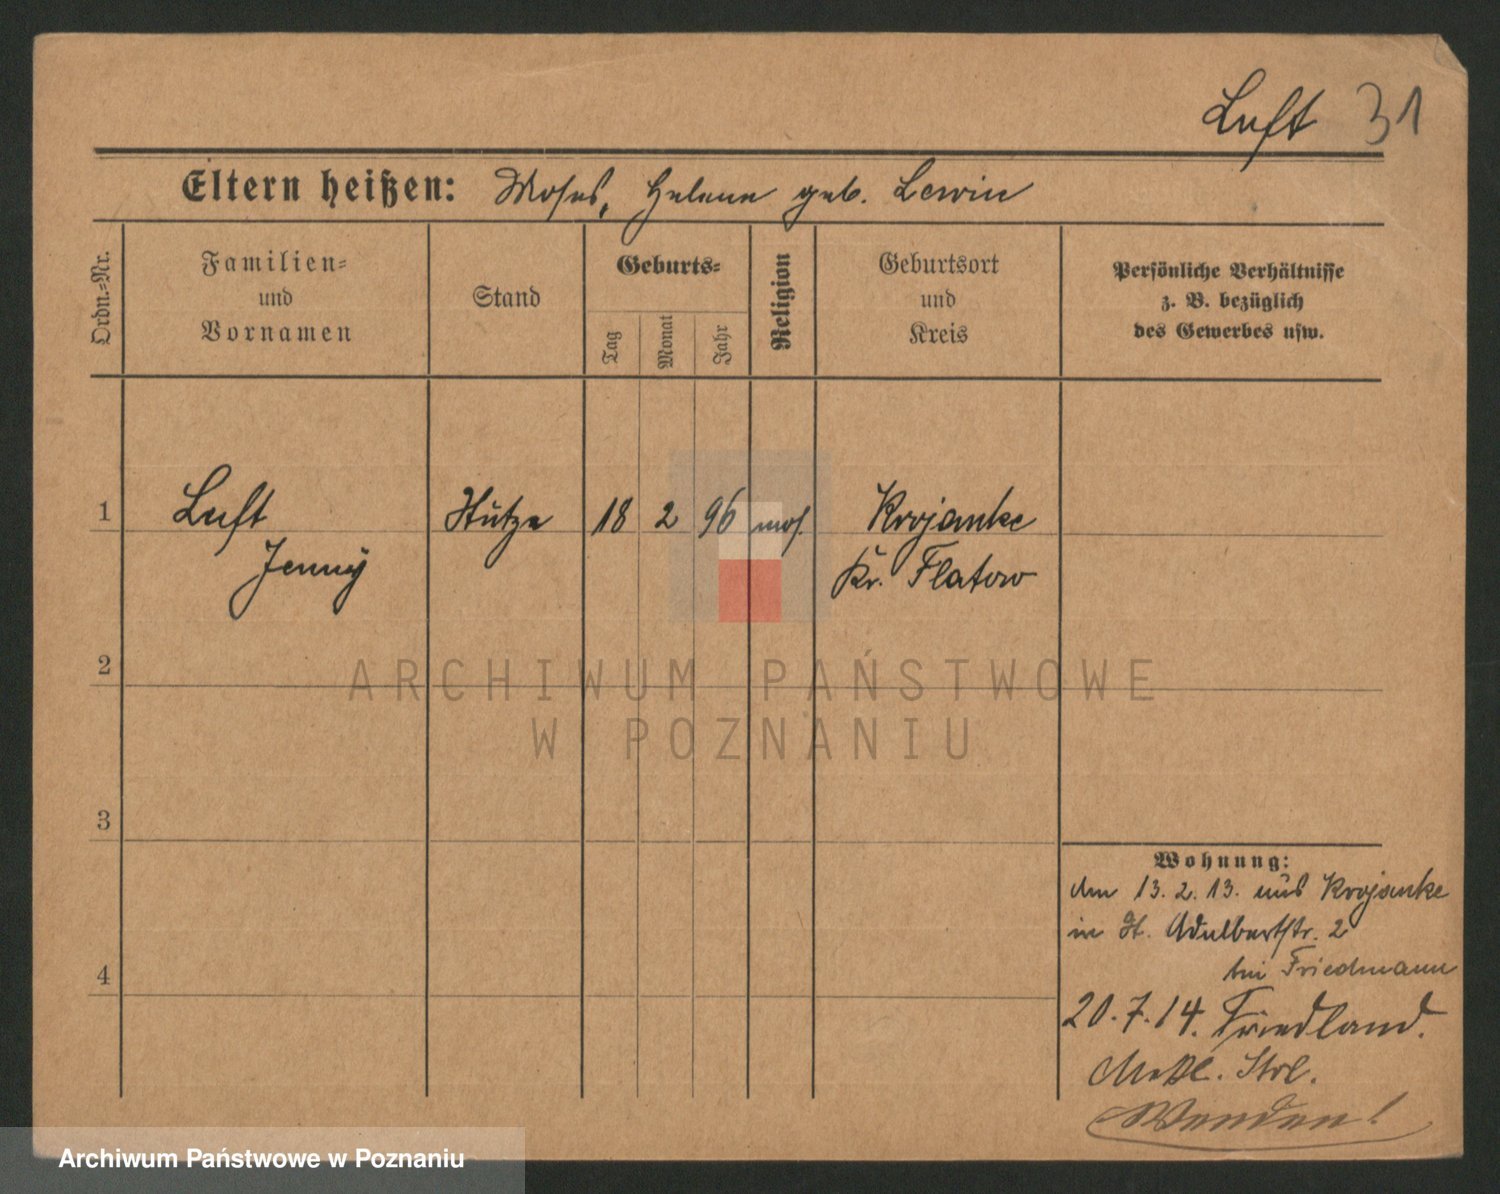 Luft 31
Eltern heißen: Moses, Helene geb. Lewin
Ordn.-Nr.
Familien-
und
Vornamen
Stand
Geburts-
Tag
Monat
Jahr
Religion
Geburtsort
und
Kreis
Persönliche Verhältnisse
z. B. bezüglich
des Gewerbes usw.
1 Luft Stütze 18 2 96 mos. Krojanke
Jenny Kr. Flatow
2
ARCHIWUM PAŃSTWOWE
W POZNANIU
3
Wohnung:
den 13. 2. 13. aus Krojanke
in St. Adalbertstr. 2
4
bei Friedmann
20. 7. 14. Friedland.
Meckl. Strl.
Wenden!
Archiwum Państwowe w Poznaniu